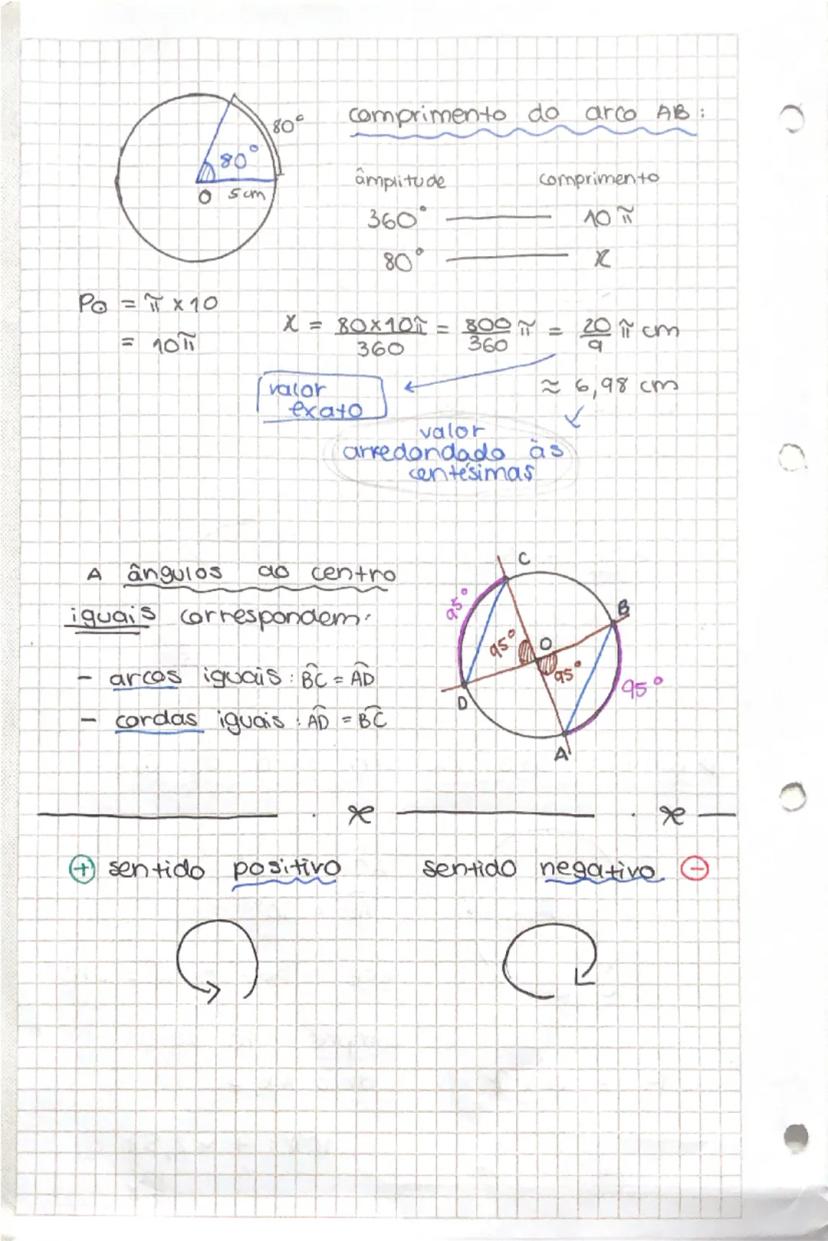 80°
80°
O 5cm
comprimento do arco AB:
âmplitude comprimento
360° 10π
80° x
P⊙ = π x 10
= 10π
x = 80x10π/360 = 800/360 π = 20/9 π cm
≈ 6,98 cm
valor exato
valor
arredondado às
centésimas
A ângulos ao centro
iguais correspondem:
- arcos iguais: B͡C = A͡D
- cordas iguais: A͡D = B͡C
C
95°
B
95°
O
95°
95°
D
A
⊕ sentido positivo
sentido negativo ⊖